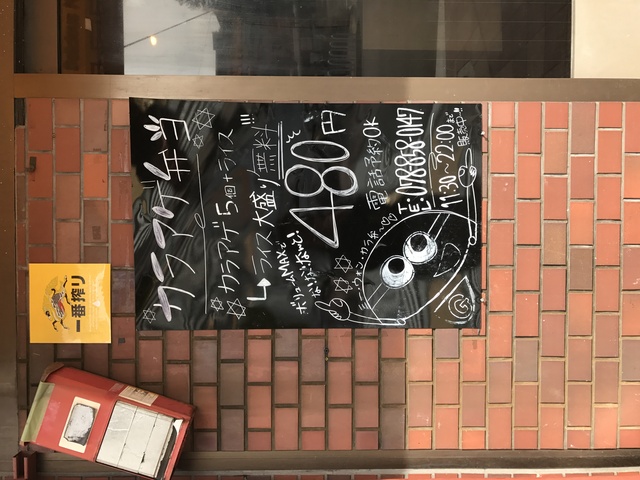 カラアゲ弁当
カラアゲ5個+ライス
ライス大盛り無料!!!
ボリュームMAXで
480円
電話予約OK
TEL 078 858 0147
11:30〜22:00まで
販売中!!
一番搾り